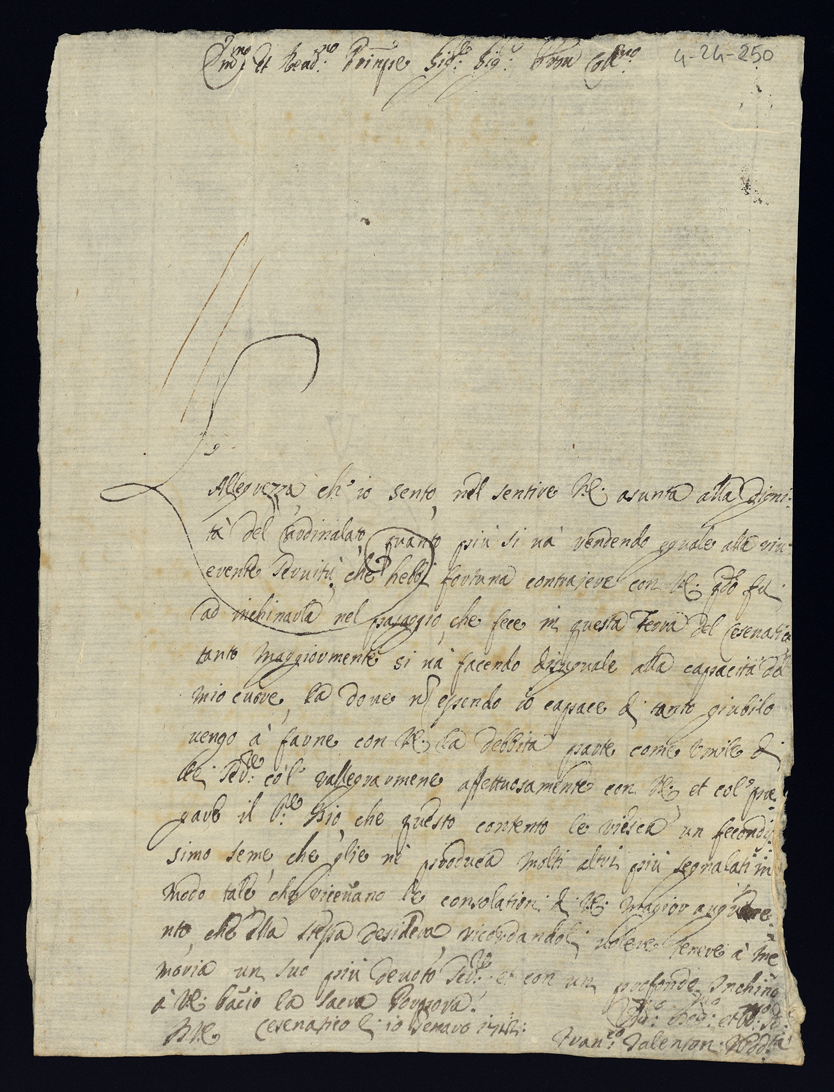 Em.mo et Reu.mo Principe Sig.re Sig.r Pron Coll.mo
4-24-250
L'
Allegrezza ch'io sento nel sentire VE: asunta alla digni-
tà del Cardinalato quanto più si và rendendo eguale alla riu-
erente Seruitù che hebbi fortuna contraere con VE: qdo fui
ad inchinarla nel passaggio che fece in questa Terra del Cesenatico
tanto maggiormente si và facendo disuguale alla capacità del
mio cuore, la doue n essendo io capace di tanto giubilo
uengo à farne con VE: la debbita parte come umile di
lei Ser.re col rallegrarmene affettuosamente con VE: et col pre-
gare il S.re Iddio che questo contento le riesca un fecondi-
simo seme che glie ne produca molti altri più segnalati in
modo tale che riceuano le consolationi di VE: magior augume-
nto, che ella stessa desidera, ricordandoli uolere tenere à me
moria un suo più deuoto Ser.re et con un profondo inchino
à VE: bacio la sacra Porpora.
Cesenatico li 10 Genaro
Fran.co